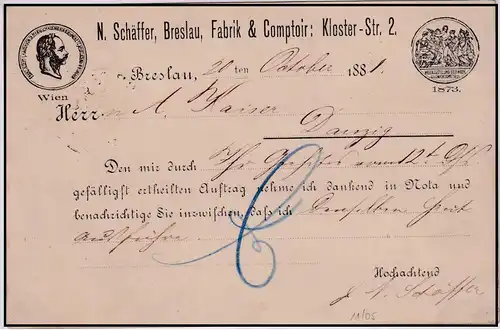 N. Schäffer, Breslau, Fabrik & Comptoir: Kloster-Str. 2.
Wien
1873.
Breslau, 20 ten October 1881.
Herrn A. Kaiser
Danzig
Den mir durch Ihr Geehrtes vom 12t. dss
gefälligst ertheilten Auftrag nehme ich dankend in Nota und
benachrichtige Sie inzwischen, daß ich denselben heut
ausführe
Hochachtend
N. Schäffer
11/05